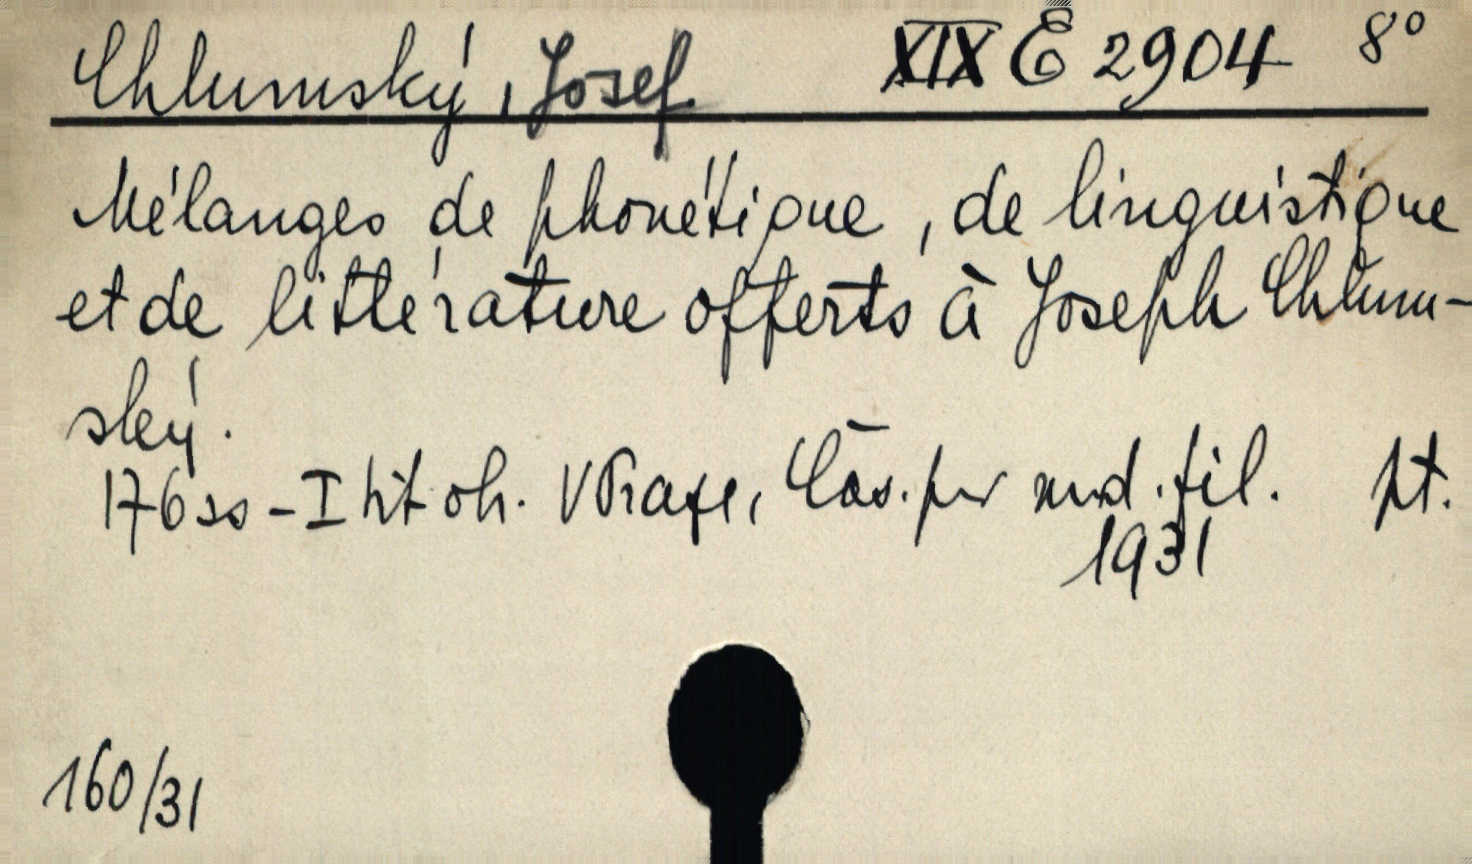 Chlumský, Josef XIX E 2904 8°
Mélanges de phonétique, de linguistique
et de littérature offerts à Joseph Chlum-
ský.
176 ss - I tit. obr. V Praze, Čas. pro mod. fil. pt.
1931
160/31